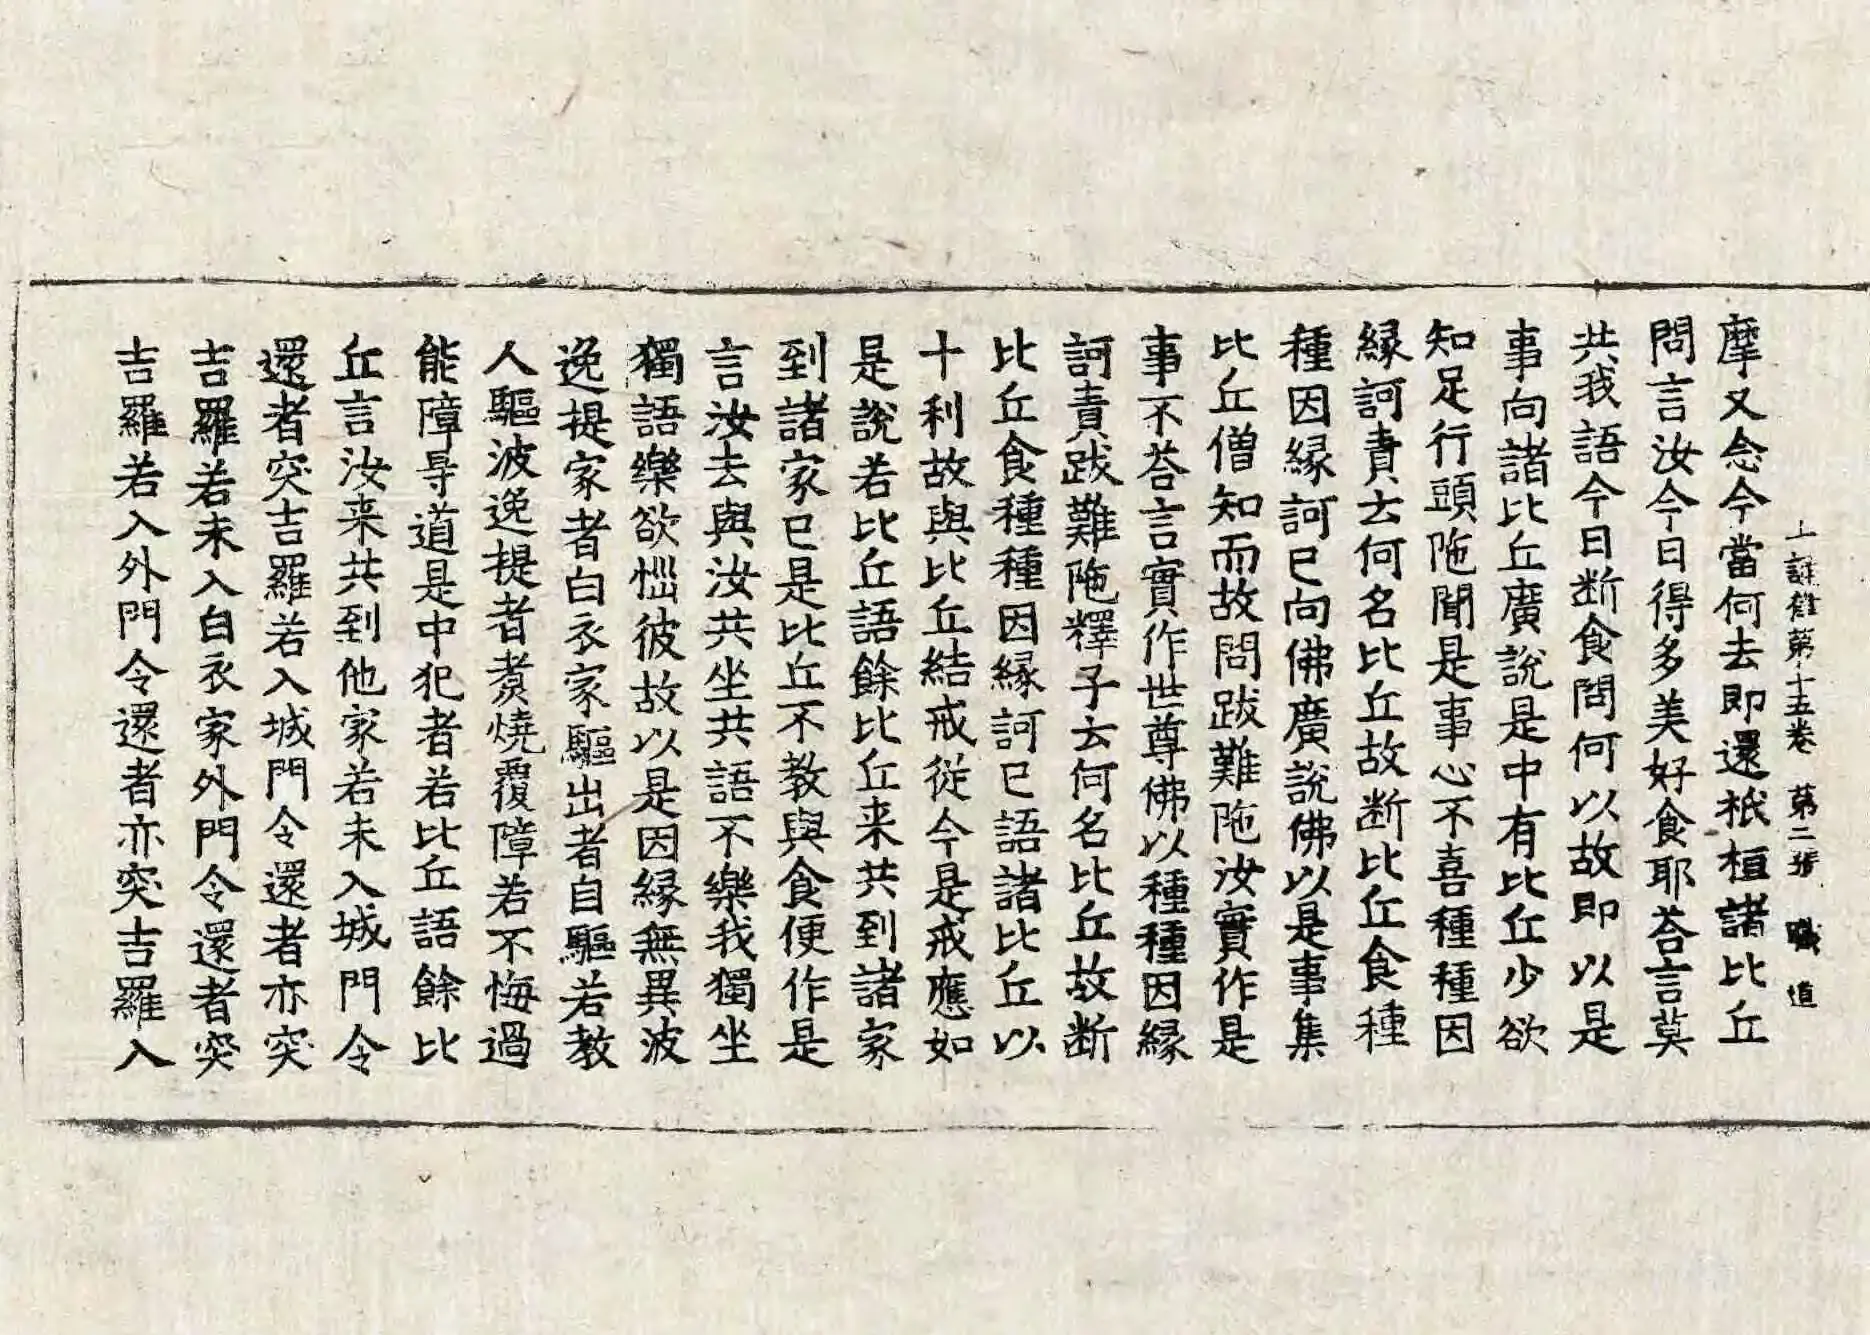 十誦律第十五卷 第二張 職 道
摩又念今當何去即還祇桓諸比丘
問言汝今日得多美好食耶荅言莫
共我語今日断食問何以故即以是
事向諸比丘廣說是中有比丘少欲
知足行頭陁聞是事心不喜種種因
縁訶責云何名比丘故断比丘食種
種因縁訶已向佛廣說佛以是事集
比丘僧知而故問跋難陁汝實作是
事不荅言實作世尊佛以種種因縁
訶責跋難陁釋子云何名比丘故断
比丘食種種因縁訶已語諸比丘以
十利故與比丘結戒從今是戒應如
是說若比丘語餘比丘来共到諸家
到諸家已是比丘不教與食便作是
言汝去與汝共坐共語不樂我獨坐
獨語樂欲惱彼故以是因縁無異波
逸提家者白衣家驅出者自驅若教
人驅波逸提者煑燒覆障若不悔過
能障㝵道是中犯者若比丘語餘比
丘言汝来共到他家若未入城門令
還者突吉羅若入城門令還者亦突
吉羅若未入白衣家外門令還者突
吉羅若入外門令還者亦突吉羅入